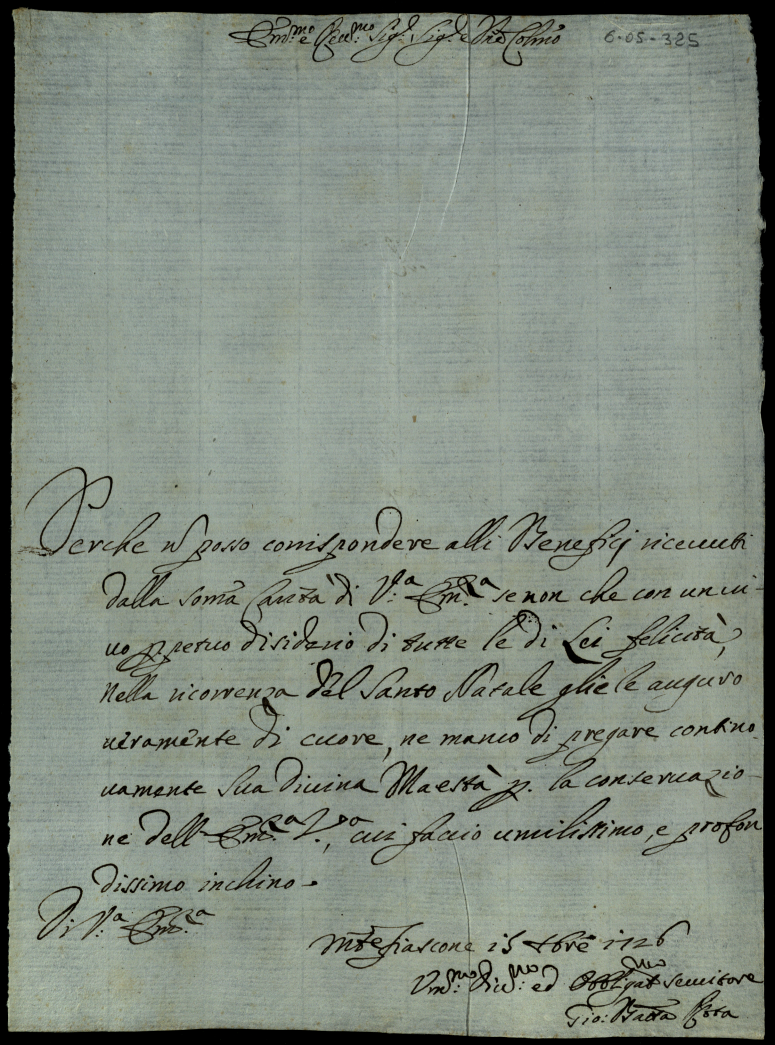 Em.mo e Reu.mo Sig.r Sig.r e Pne Colmo 6-05-325
Perche nõ posso conispondere alli Beneficij riceuuti
dalla somã Carità di V.a Em.a se non che con un ui-
uo ppetuo disiderio di tutte le di Lei felicità,
nella ricorrenza del Santo Natale glie le auguro
ueramente di cuore, ne manco di pregare contino-
uamente Sua Diuina Maestà p. la conseruazio-
ne dell' Em.a V.a, cui faccio umilissimo, e profon
dissimo inchino.
Di V.a Em.a
Mtefiascone 15 Xbre 1726
Um.mo Diu.mo ed Obbligat.mo seruitore
Gio: Batta